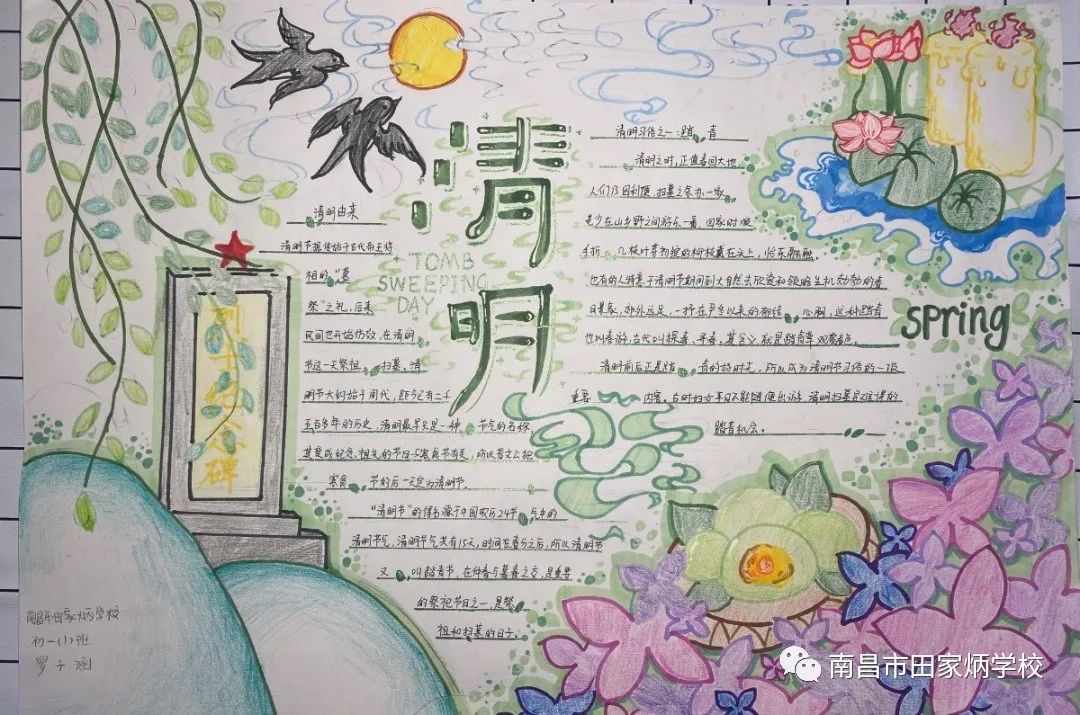 清明
TOMB
SWEEPING
DAY
清明由来
清明节据传始于古代帝王将
相的“墓
祭”之礼，后来
民间也开始仿效，在清明
节这一天祭祖 扫墓，清
明节大约始于周代，距今已有二千
五百多年的历史，清明最早只是一种 节气的名称
其变成纪念祖先的节日与寒食节有关，所以晋文公把
寒食 节的后一天定为清明节。
“清明节”的得名源于中国农历24节 气中的
清明节气，清明节气共有15天，时间在春分之后，所以清明节
又 叫踏青节，在仲春与暮春之交，是重要
的祭祀节日之一，是祭
祖和扫墓的日子。
清明习俗之一：踏 青
清明之时，正值春回大地
人们乃因利便，扫墓之余亦一家
老少在山乡野之间游乐一番，回家时顺
手折 几枝叶芽初绽的柳枝戴在头上，怡乐融融。
也有的人特意于清明节期间到大自然去欣赏和领略生机勃勃的春
日景象，郊外远足，一抒在严冬以来的郁结 心胸，这种踏青
也叫春游，古代叫探春、寻春，其含义 就是踏青草、观赏春色。
清明前后正是踏 青的好时光，所以成为清明节习俗的一项
重要 内容，古时妇女平日不能随便出游，清明扫墓是难得的
踏青机会。
spring
烈士纪念碑
南昌市田家炳学校
初一（1）班
罗子涵
南昌市田家炳学校